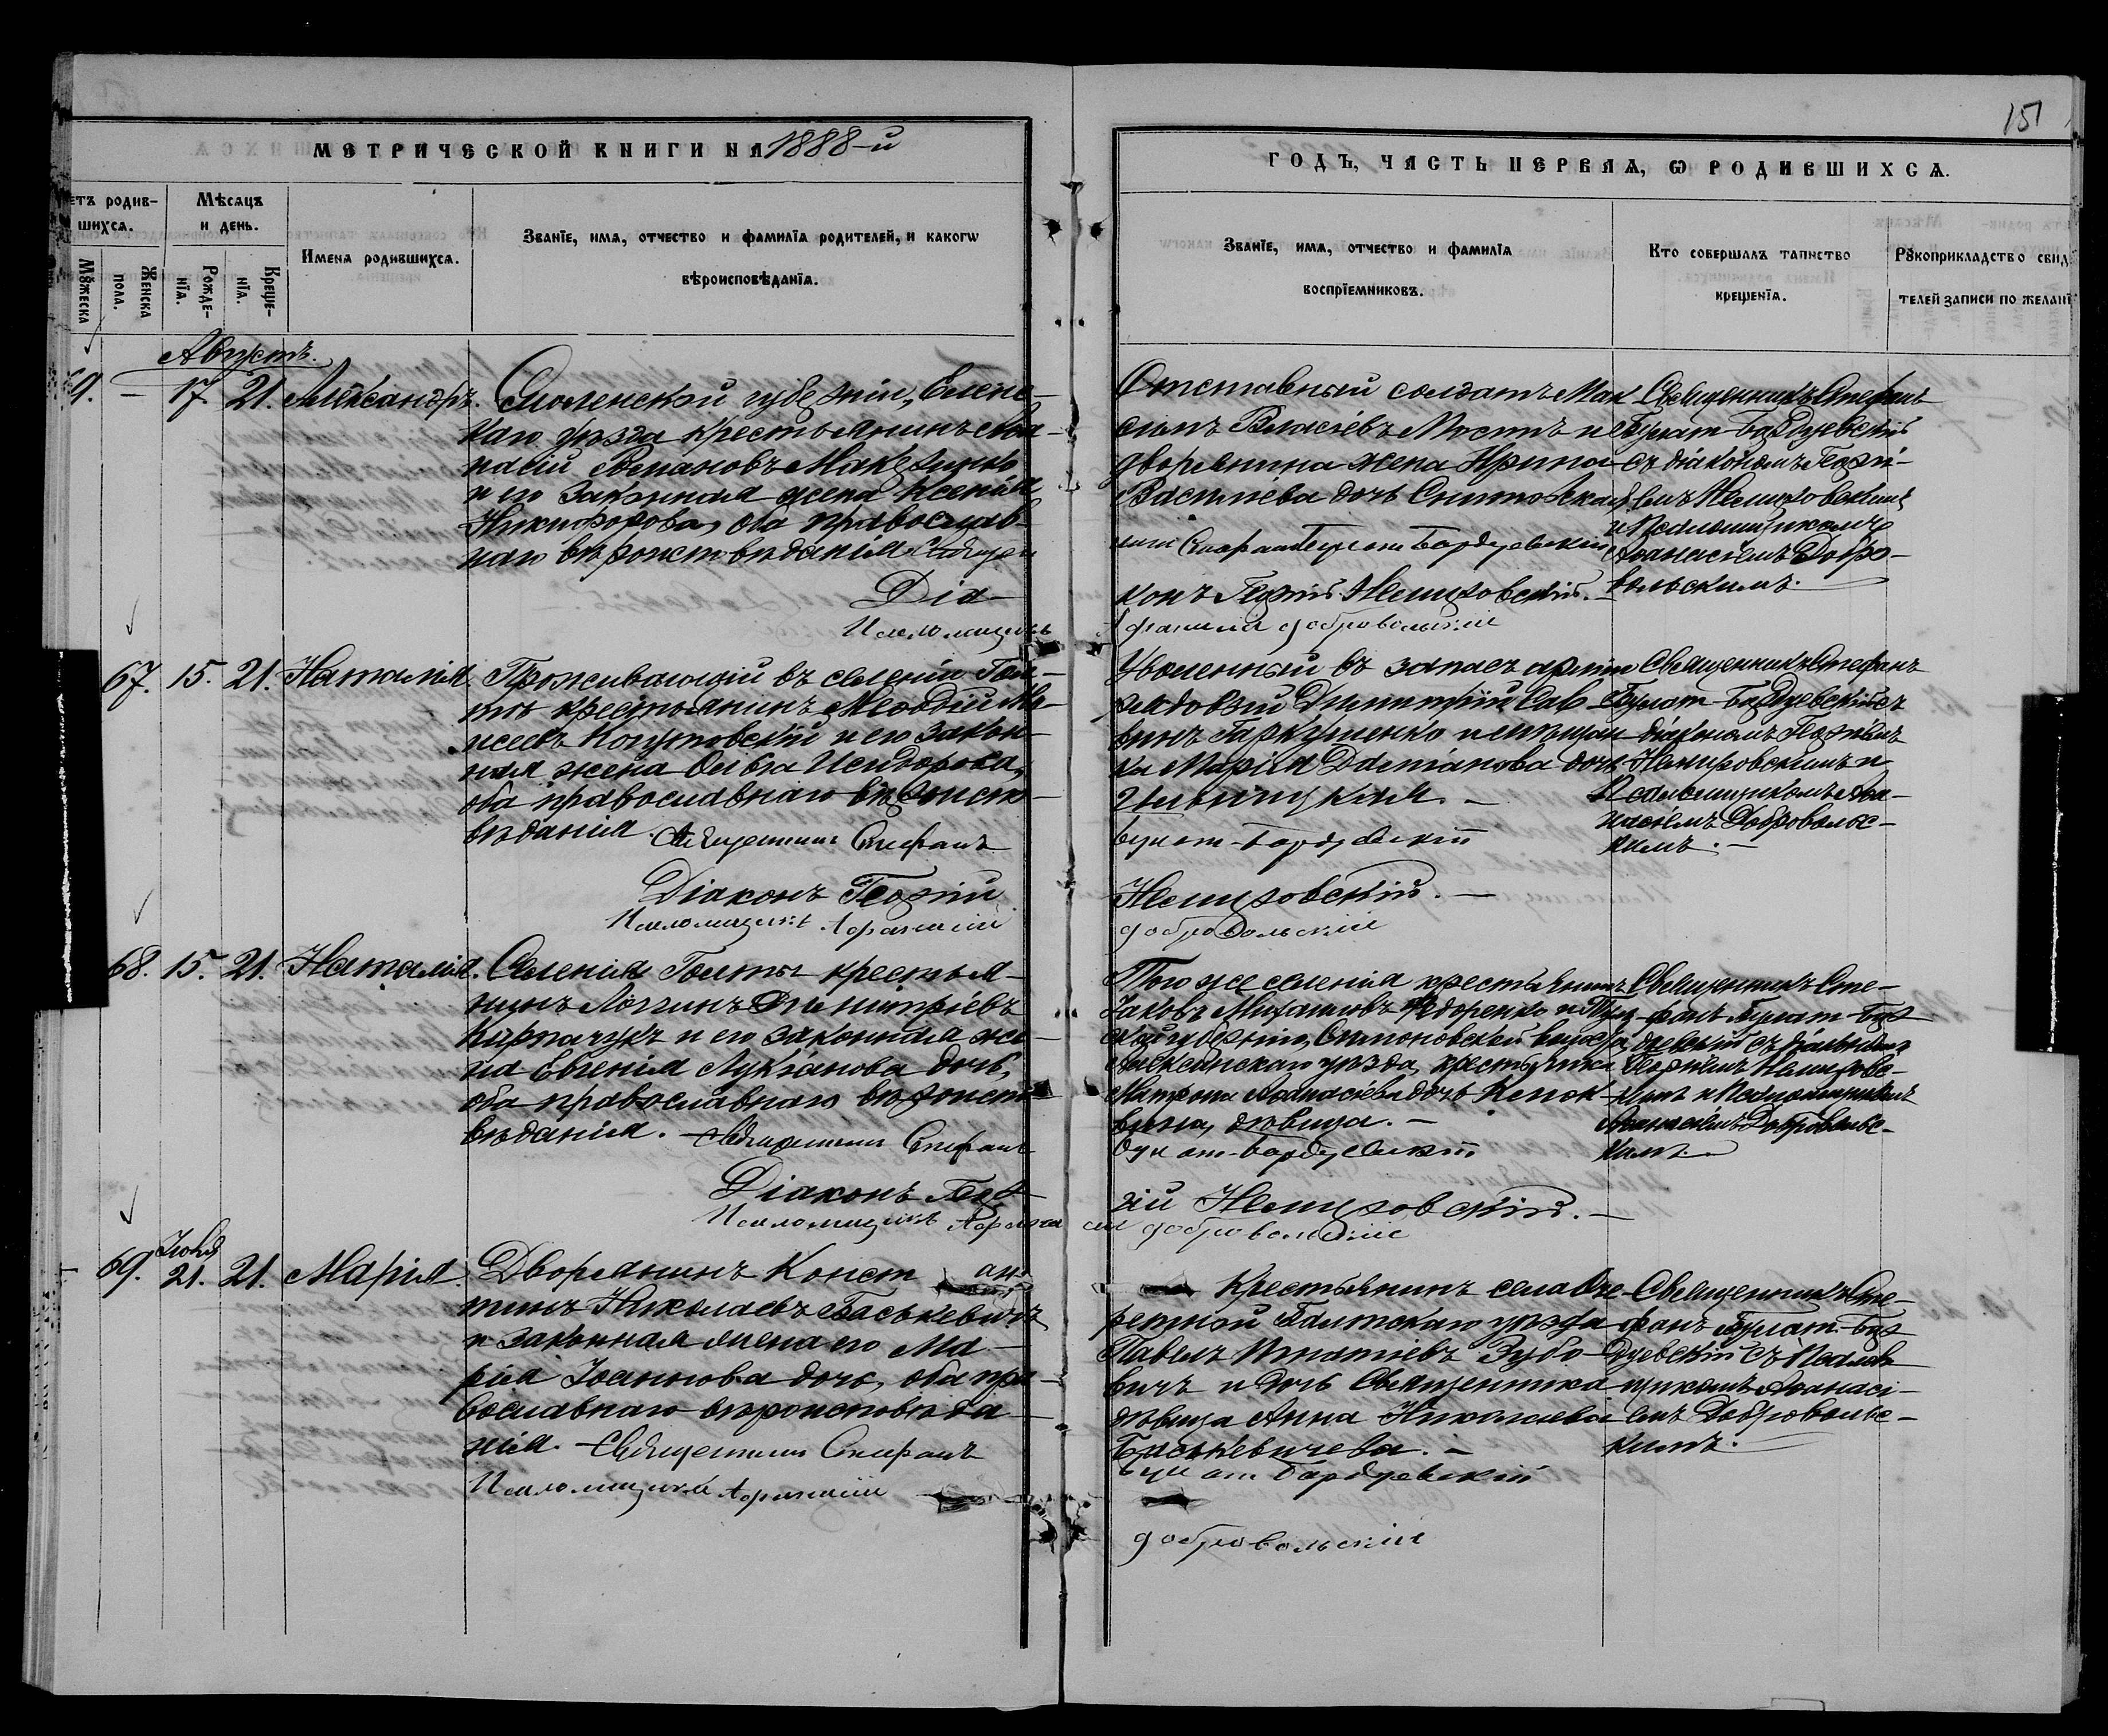 151
МЕТРИЧЕСКОЙ КНИГИ НА 1888-й
ГОДЪ, ЧАСТЬ ПЕРВАЯ, Ѡ РОДИВШИХСѦ.
етъ родив-
шихсѧ.
Мѣсяцъ
и день.
Мꙋжеска
Женска
пола.
Рожде-
нїѧ.
Креще-
нїѧ.
Имена родившихсѧ.
Званїе, имѧ, отчество и фамилїѧ родителей, и какогѡ
вѣроисповѣданїѧ.
Званїе, имѧ, отчество и фамилїѧ
воспрїемниковъ.
Кто совершалъ таинство
крещенїѧ.
Рꙋкоприкладство свид
телей записи по желанї
Августъ.
69. — 17. 21. Александръ.
Смоленской губерніи, Ельнс-
каго уѣзда крестьянинъ Аѳа-
насій Степановъ
и его законная жена Ксенія
Никифорова, оба православ-
наго вѣроисповѣданія. Священ
Діа-
Псаломщикъ
Отставный солдатъ Мак-
симъ Власіевъ и
дворянина жена Ирина
дочь
никъ Стефанъ Булат-Бардуевскій
конъ Георгій Немировскій. —
Афанасій Добровольскій
Священникъ Стефанъ
Булат-Бардуевскій
съ діакономъ Георгі-
емъ Немировскимъ
и Псаломщикомъ
Аѳанасіемъ Добро-
вольскимъ.
67. 15. 21. Наталія
Проживающій въ селеніи Гол-
тѣ крестьянинъ Меѳодій Мо-
исеевъ и его закон-
ная жена Ольга Исидорова,
оба православнаго вѣроиспо-
вѣданія. Священникъ Стефанъ
Діаконъ Георгій
Псаломщикъ Афанасій
Уволенный въ запасъ арміи
рядовый Димитрій Сав-
винъ Гаркушенко и мѣщан-
ка Марія Даміанова дочь
Булат-Бардуевскій
Немировскій. —
Добровольскій
Священникъ Стефанъ
Булат-Бардуевскій съ
діакономъ Георгіемъ
Немировскимъ и
Псаломщикомъ Аѳа-
насіемъ Добровольс-
кимъ. —
68. 15. 21. Наталія.
Селенія Голты крестья-
нинъ Логгинъ Димитріевъ
Кирпачукъ и его законная же-
на Евгенія Лукіанова дочь,
оба православнаго вѣроиспо-
вѣданія. — Священникъ Стефанъ
Діаконъ Геор-
Псаломщикъ Афана
Того же селенія крестьянинъ
Іаковъ Михаиловъ Ѳедоренко и Туль-
ской губерніи,
Алексинскаго уѣзда, крестьянка
Матрона Аѳанасіева дочь
дѣвица. —
Булат-Бардуевскій
гій Немировскій. —
сій Добровольскій
Священникъ Сте-
фанъ Булат-Бар-
дуевскій съ діакономъ
Георгіемъ Немировс-
кимъ и Псаломщикомъ
Аѳанасіемъ Добровольс-
кимъ.
Іюня
69. 21. 21. Марія
Дворянинъ Констан-
тинъ Николаевъ Баськевичъ
и законная жена его Ма-
рія Іоаннова дочь, оба пра-
вославнаго вѣроисповѣда-
нія. — Священникъ Стефанъ
Псаломщикъ Афанасій
Крестьянинъ села Оче-
ретной Балтскаго уѣзда
Павелъ Игнатіевъ Зубо-
вичъ и дочь Священника
дѣвица Анна Николаева
Баськевичева. —
Булат-Бардуевскій
Добровольскій
Священникъ Сте-
фанъ Булат-Бар-
дуевскій съ Псалом-
щикомъ Аѳанасі-
емъ Добровольс-
кимъ.